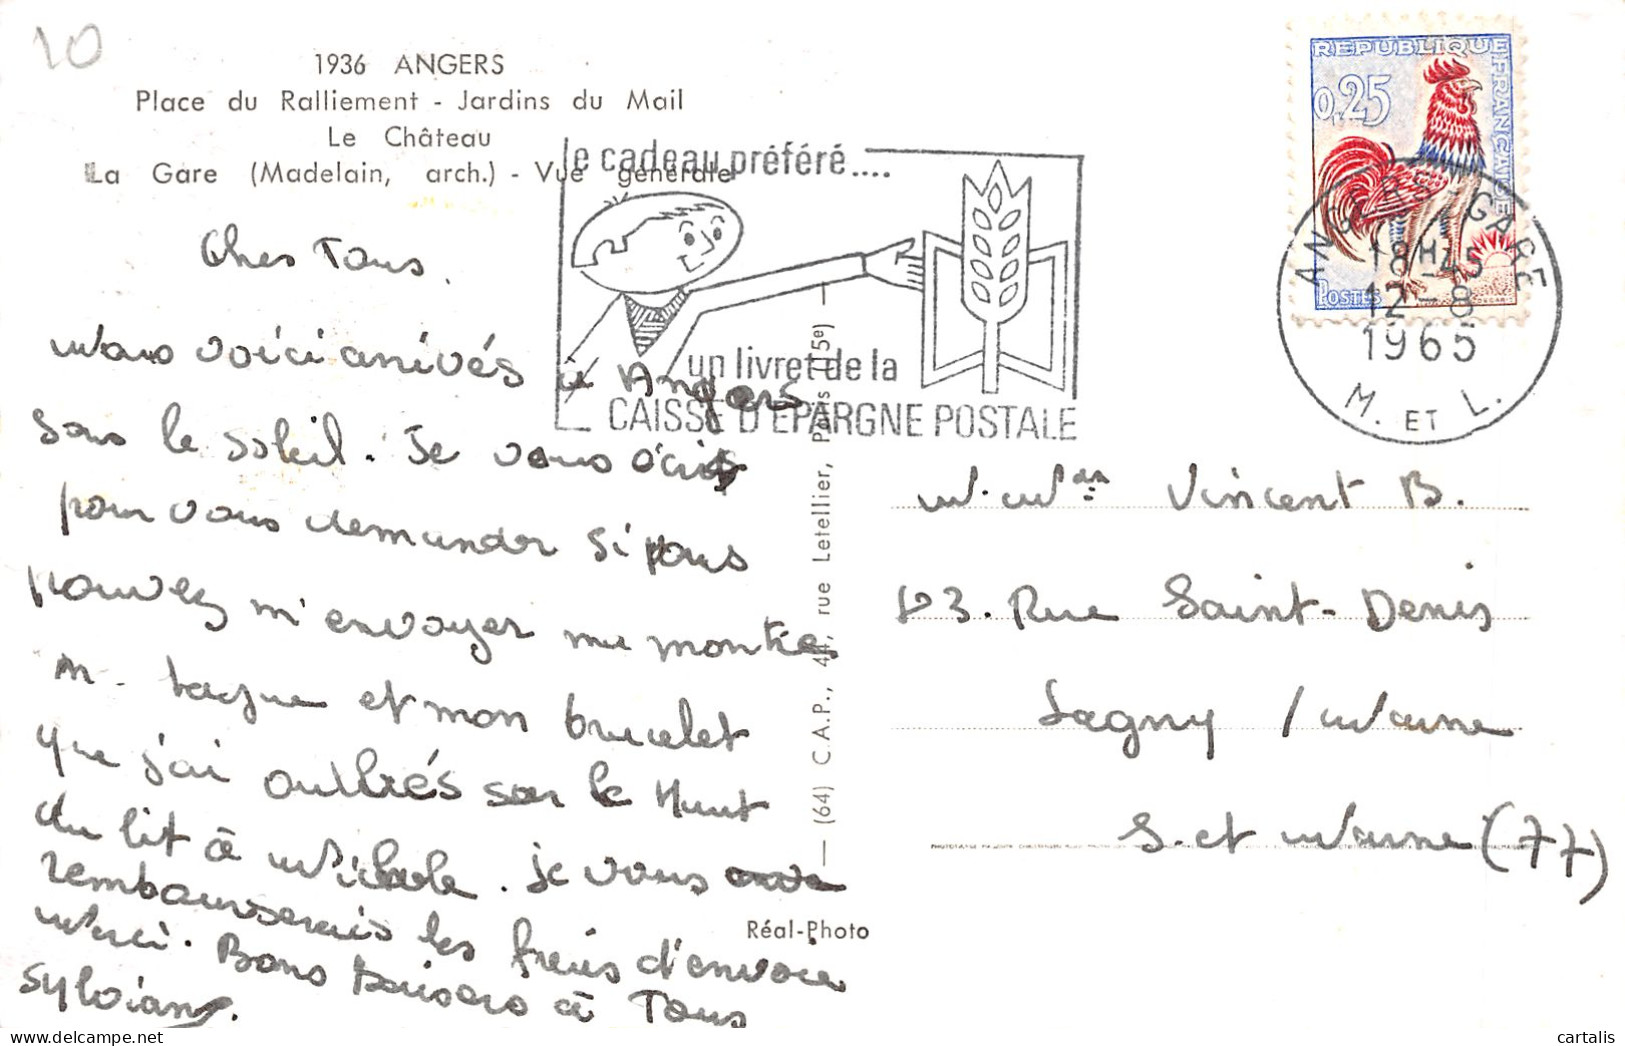 10
1936 ANGERS
Place du Ralliement - Jardins du Mail
Le Château
La Gare (Madelain, arch.) - Vue générale
le cadeau préféré....
un livret de la
CAISSE D'EPARGNE POSTALE
REPUBLIQUE FRANÇAISE
0,25
POSTES
ANGERS-GARE
18H45
12-8
1965
M. ET L.
Chers Tous,
Nous voici arrivés à Angers
sous le soleil. Je vous écris
pour vous demander si vous
pouvez m'envoyer ma montre
m. bague et mon bracelet
que j'ai oubliés sur le Haut
du lit à Michele. Je vous
rembourserais les freis d'envoie
Merci. Bons Baisers à Tous
Sylviane.
(64) C.A.P., 44, rue Letellier, Paris (15e)
Réal-Photo
M. Mme Vincent B.
123. Rue Saint-Denis
Lagny / Marne
S. et Marne (77)
cartalis